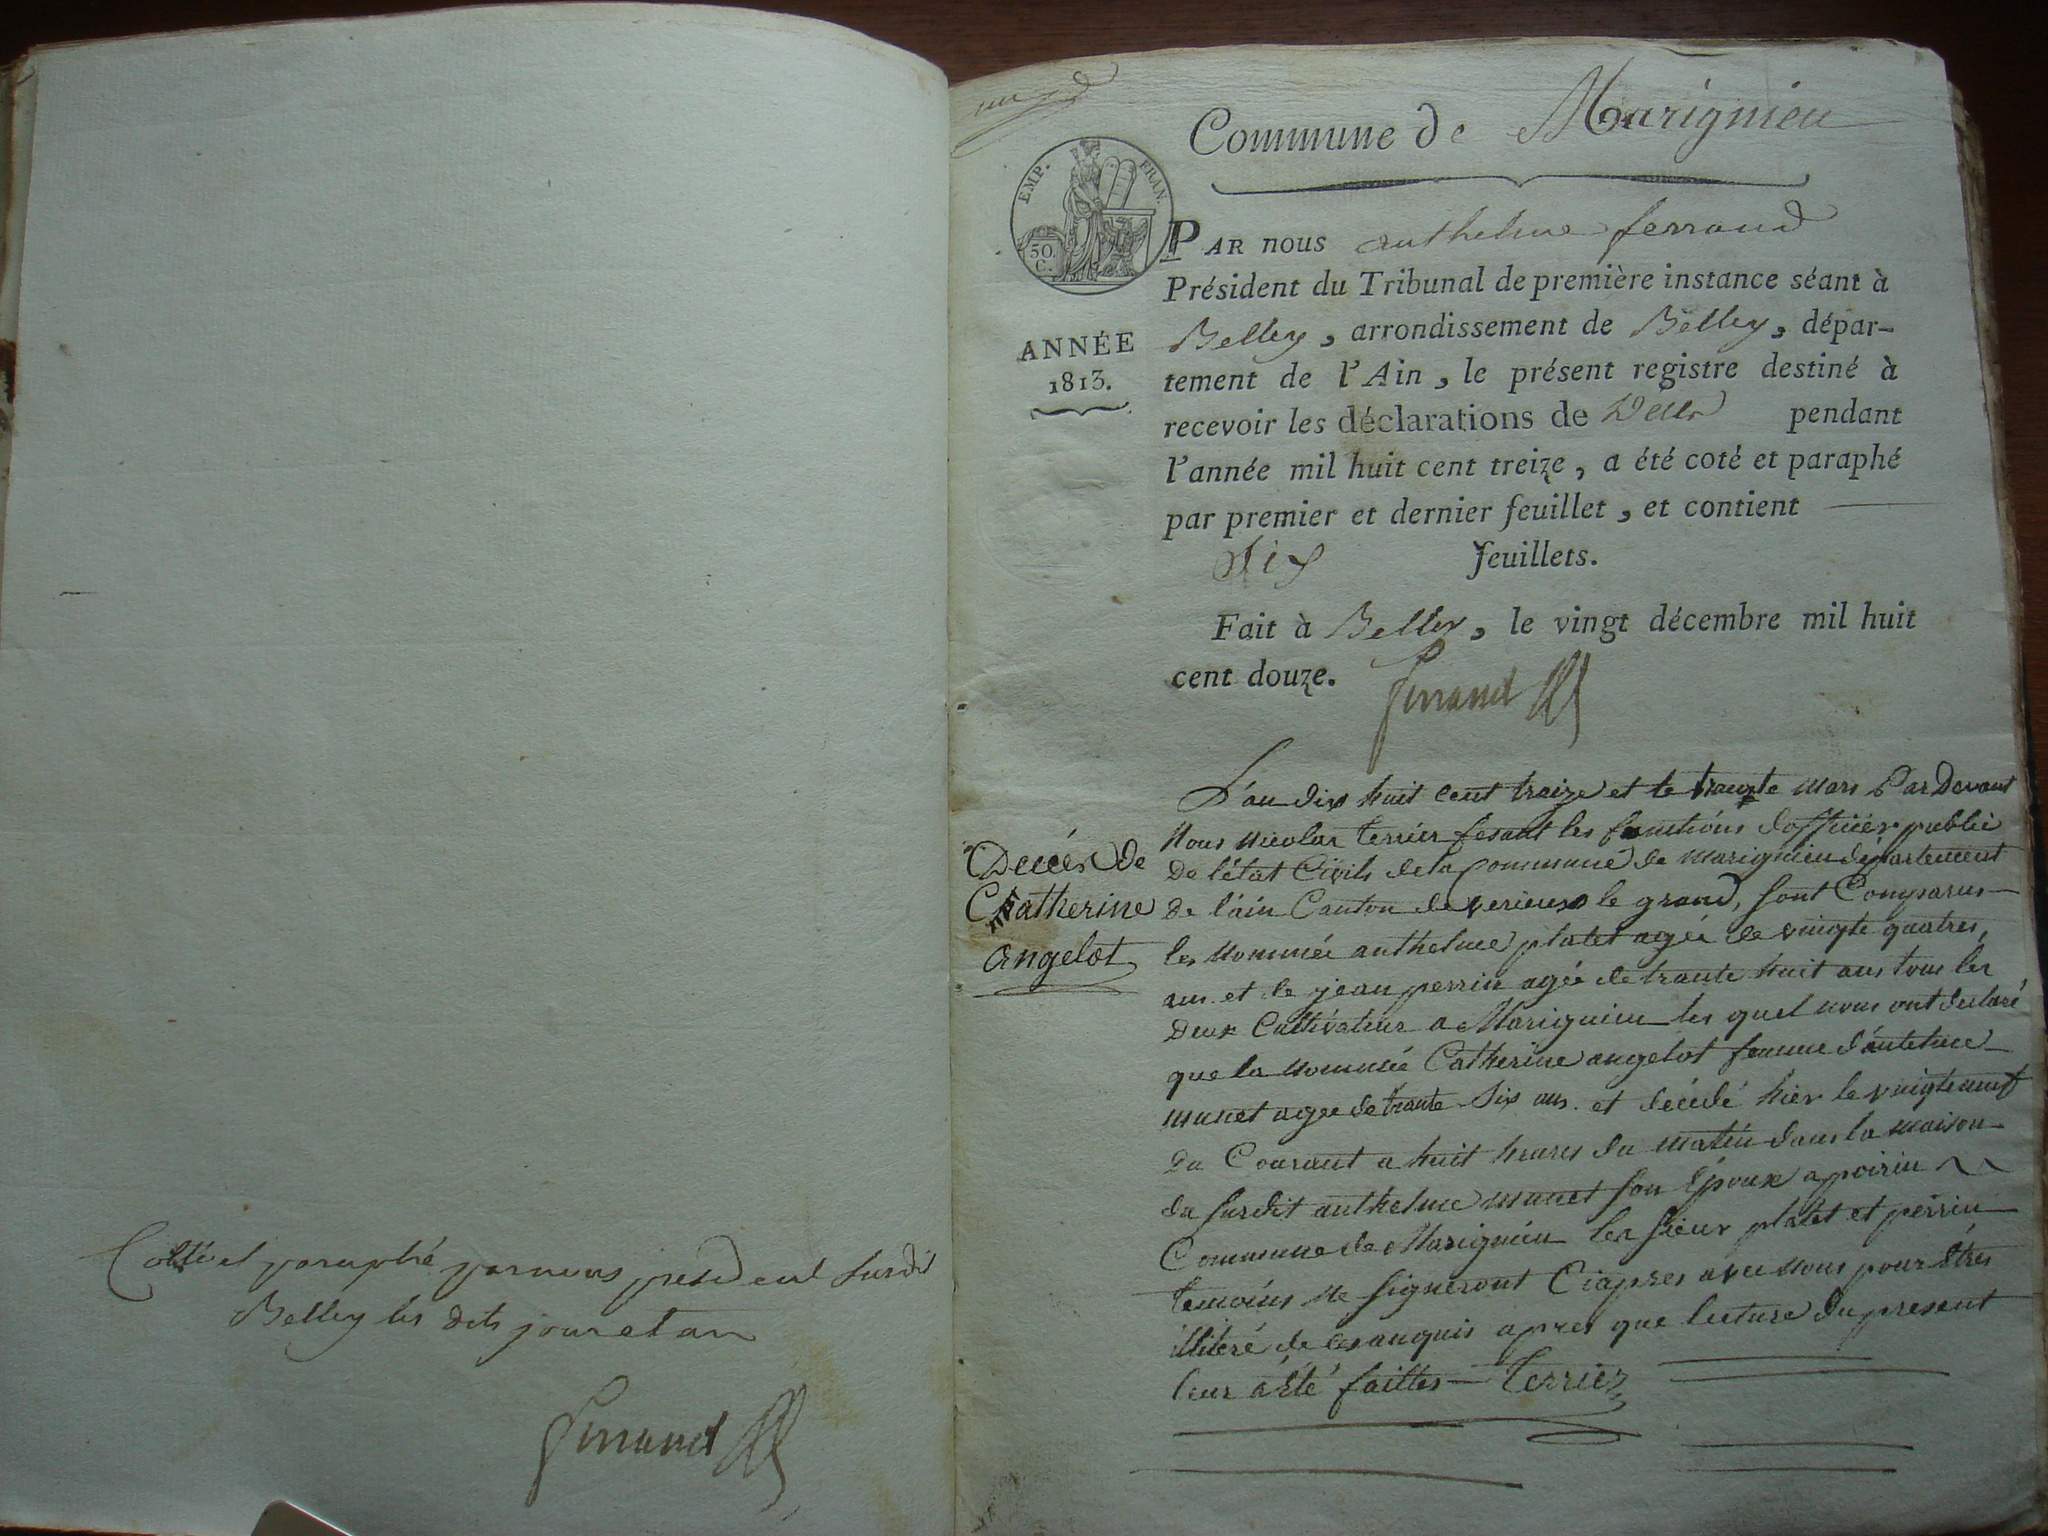 Cotté et paraphé par nous president susdit
Belley les dits jour et an
ferrand
un
Commune de Marignieu
EMP. FRAN.
50.
C.
ANNÉE
1813.
PAR nous anthelme ferrand
Président du Tribunal de première instance séant à
Belley, arrondissement de Belley, dépar-
tement de l'Ain, le présent registre destiné à
recevoir les déclarations de Décès pendant
l'année mil huit cent treize, a été coté et paraphé
par premier et dernier feuillet, et contient
six feuillets.
Fait à Belley, le vingt décembre mil huit
cent douze. ferrand
Decés de
Catherine
angelot
L'an dix huit cent traize et le trante mars Par Devant
Nous nicolas terrier fesant les fonctions d'officier public
De l'état Civils de la Commune de marignieu département
De l'ain Canton de verieux le grand, sont Comparus
les nommée anthelme platet agée de vingte quatres,
ans et de jean perrin agée de trante huit ans tous les
Deux Cultivateur a Marignieu les quel nous ont declaré
que la nommée Catherine angelot femme d'antelme
munet agee de trante six ans et décédé hier le vingteneuf
Du Courant a huit heures du matin dans la maison
du susdit anthelme munet son Époux a poirin
Commune de Marignieu les sieur platet et perrin
temoins ne signeront Ciapres avec nous pour êtres
illiteré de ces anquis apres que lecture du present
leur a Été faittes Terrier